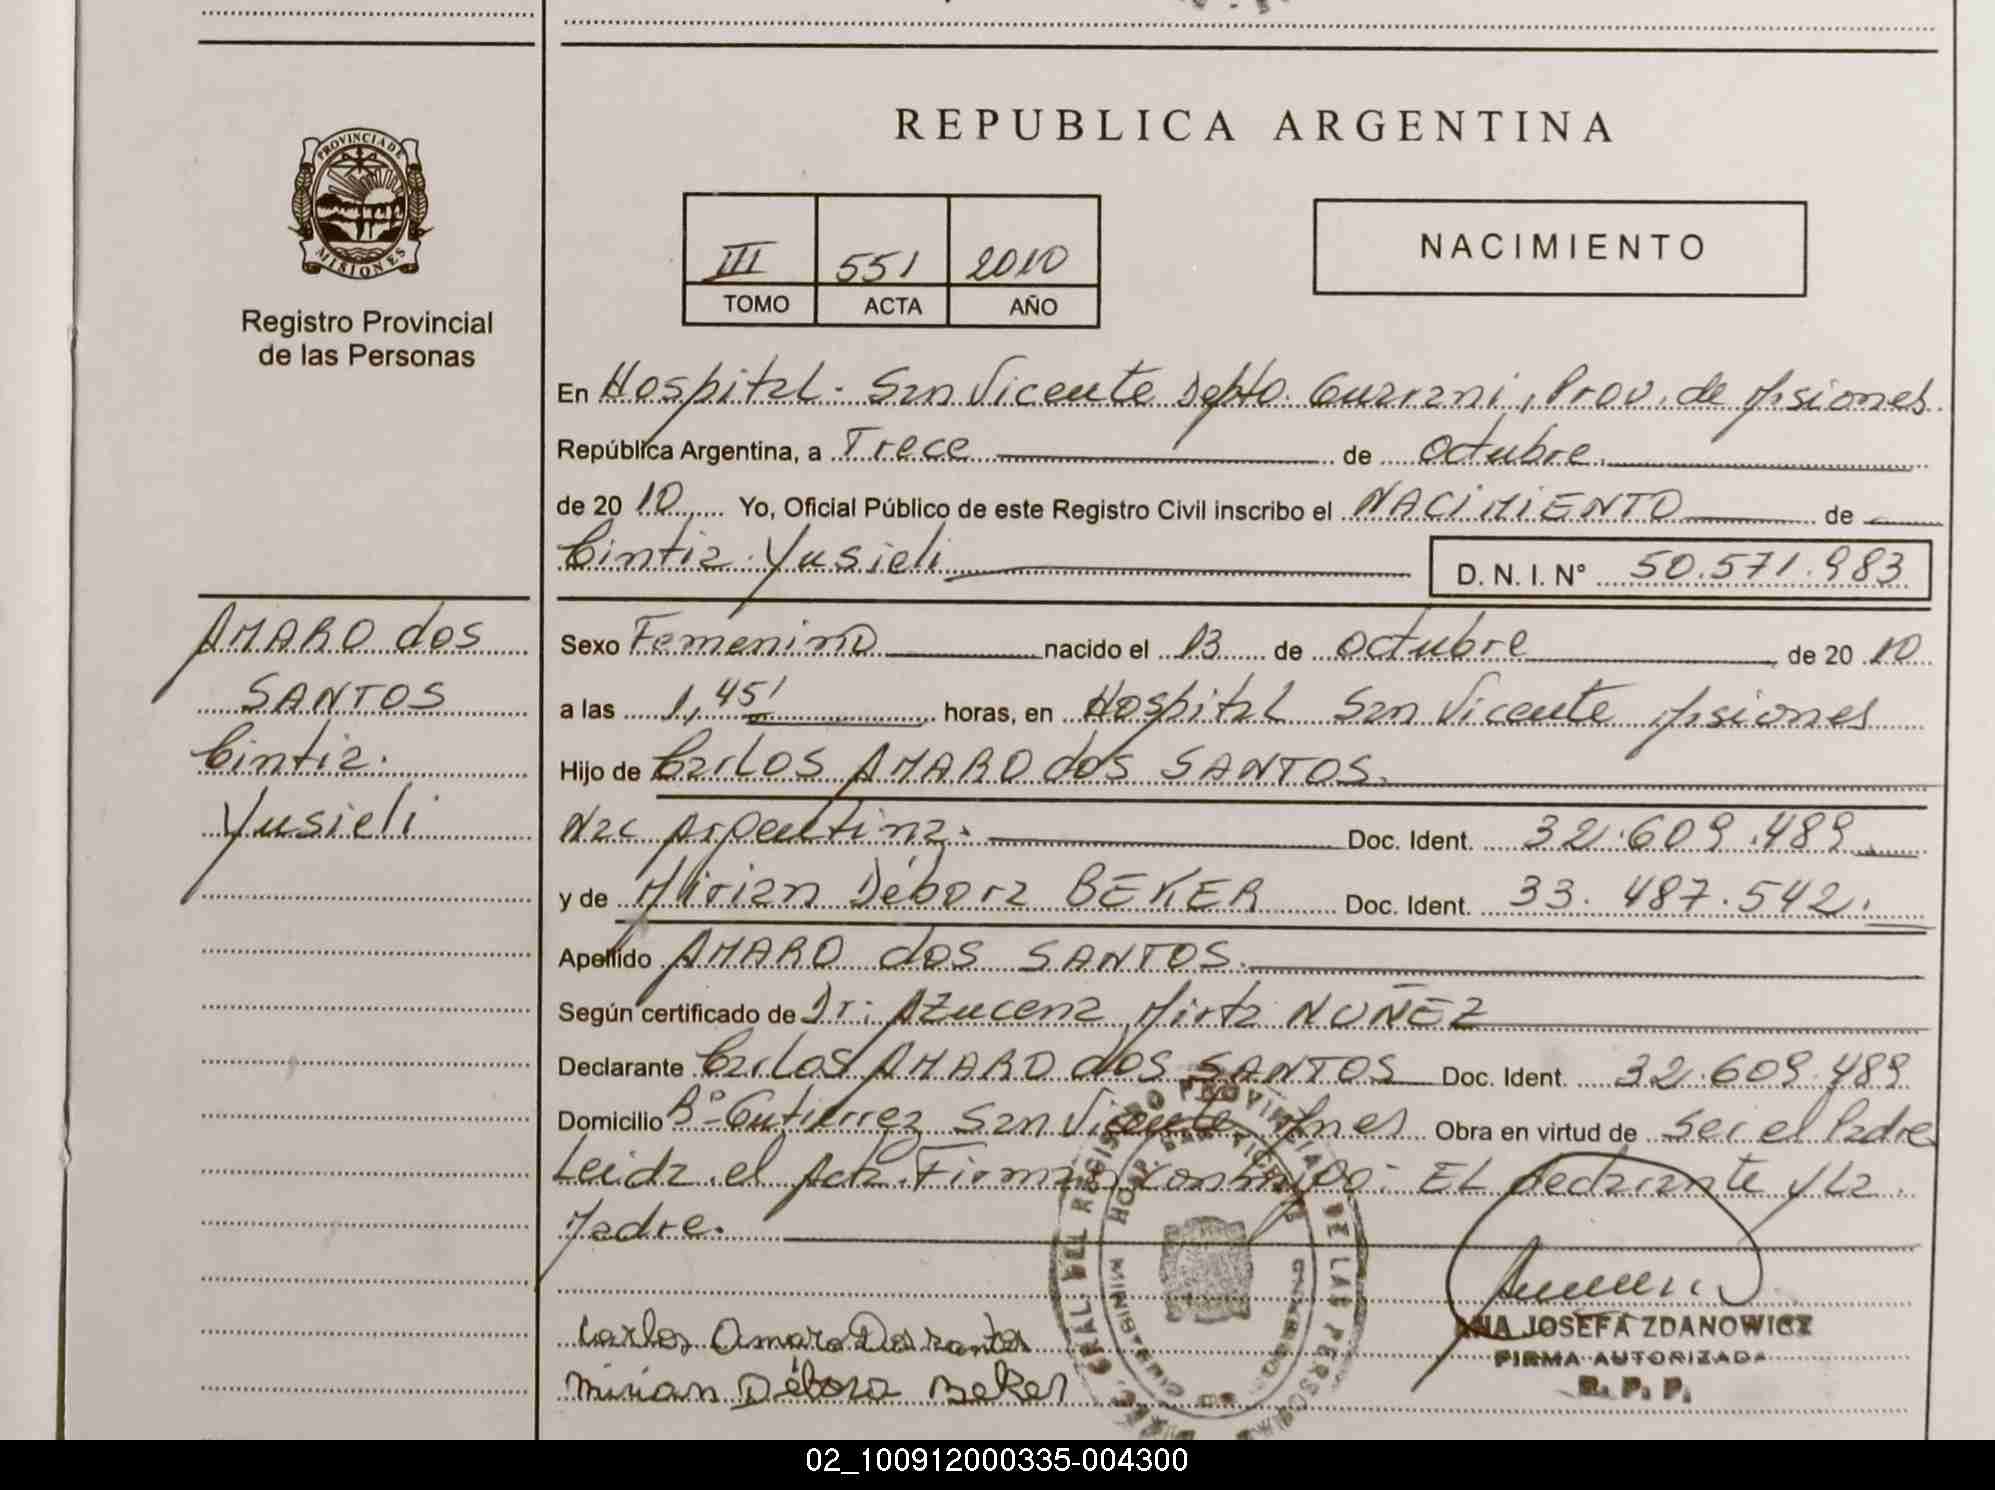 REPUBLICA ARGENTINA
PROVINCIA DE
MISIONES
Registro Provincial
de las Personas
III 551 2010
TOMO ACTA AÑO
NACIMIENTO
En Hospital San Vicente Depto. Guarani, Prov. de Misiones
República Argentina, a Trece de octubre
de 2010 Yo, Oficial Público de este Registro Civil inscribo el NACIMIENTO de
Cintia Yusieli
D. N. I. N° 50.571.983
AMARO dos
SANTOS
Cintia
Yusieli
Sexo Femenino nacido el 13 de octubre de 2010
a las 1,45' horas, en Hospital San Vicente Misiones
Hijo de Carlos AMARO dos SANTOS.
Nac Argentina. Doc. Ident. 32.609.489
y de Mirian Débora BEKER Doc. Ident. 33.487.542.
Apellido AMARO dos SANTOS.
Según certificado de Dr: Azucena Mirta NUÑEZ
Declarante Carlos AMARO dos SANTOS Doc. Ident. 32.609.489
Domicilio B° Gutierrez San Vicente Mnes Obra en virtud de ser el Padre
Leida el Acta Firman conmigo: EL declarante y La
Madre.
Carlos Amaro Dos santos
Mirian Débora Beker
GRAL. DEL REGISTRO PROVINCIAL DE LAS PERSONAS
ANA JOSEFA ZDANOWICZ
FIRMA AUTORIZADA
R. P. P.
02_100912000335-004300